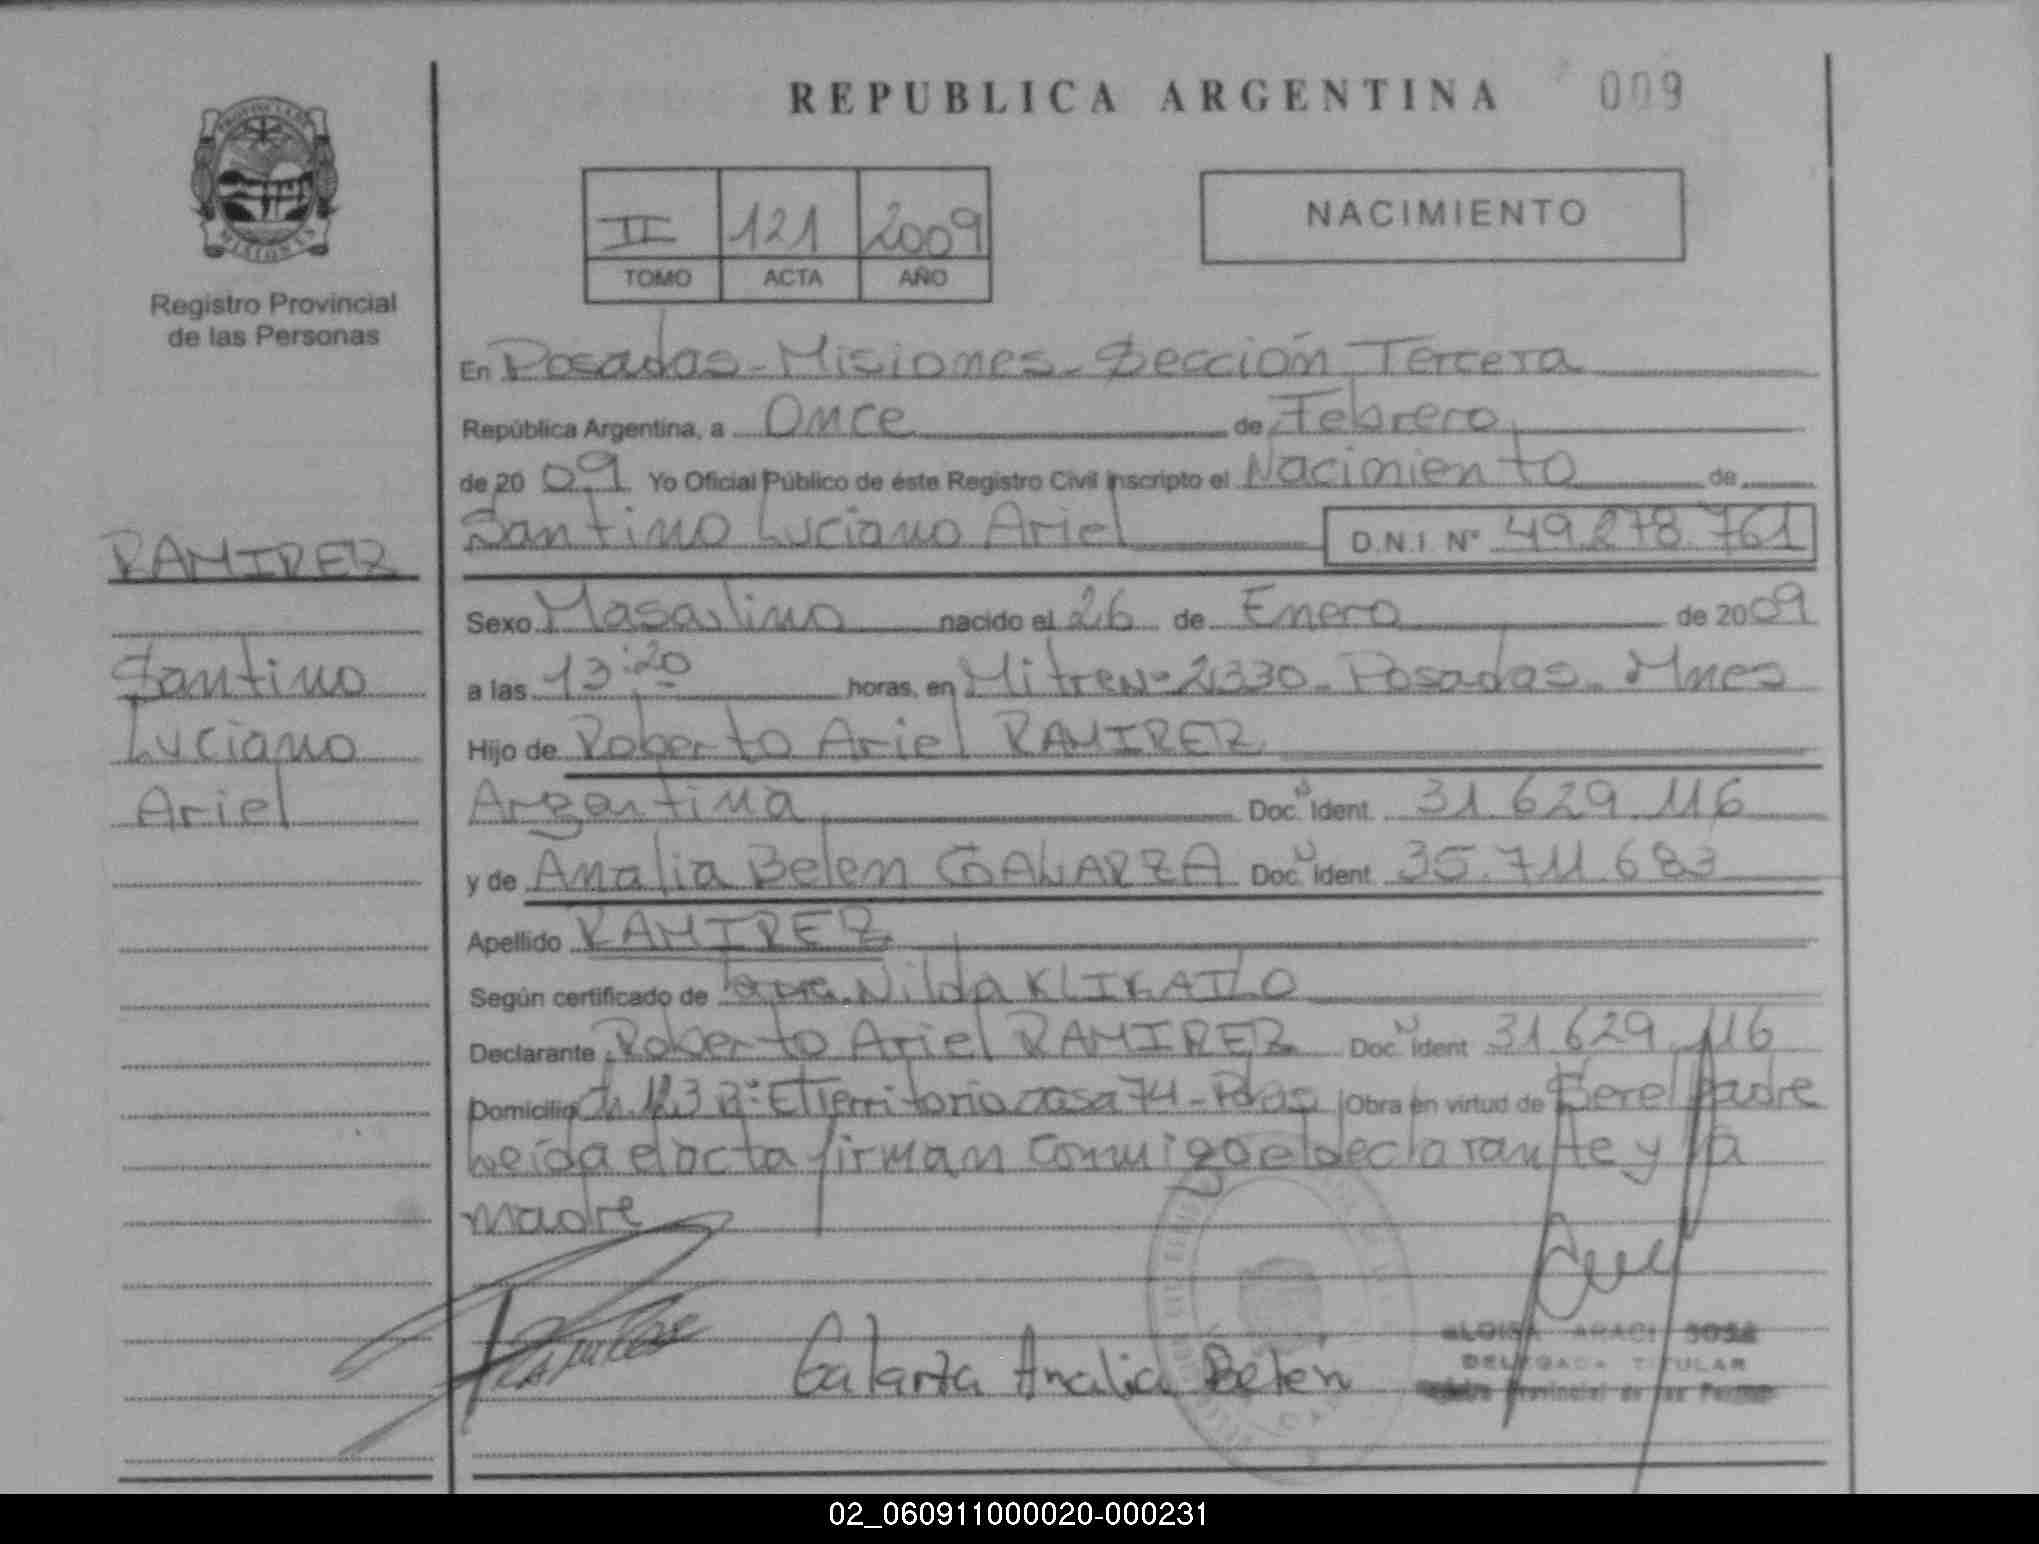 REPUBLICA ARGENTINA 009
PROVINCIA DE
MISIONES
Registro Provincial
de las Personas
II 121 2009
TOMO ACTA AÑO
NACIMIENTO
En Posadas - Misiones - Sección Tercera
República Argentina, a Once de Febrero
de 20 09 Yo Oficial Público de éste Registro Civil inscripto el Nacimiento de
Santino Luciano Ariel D.N.I. Nº 49.278.761
RAMIREZ
Santino
Luciano
Ariel
Sexo Masculino nacido el 26 de Enero de 2009
a las 13:20 horas, en Mitre Nº 2330 - Posadas - Mnes
Hijo de Roberto Ariel RAMIREZ
Argentina Doc. Ident. 31.629.116
y de Analia Belen GALARZA Doc. Ident. 35.711.683
Apellido RAMIREZ
Según certificado de Nilda KLIKAILO
Declarante Roberto Ariel RAMIREZ Doc. Ident 31.629.116
Domicilio Ch. 123 Bº El Territorio casa 74 - Pdas Obra en virtud de Ser el padre
Leída el acta firman conmigo el declarante y la
madre
Galarza Analia Belén
ELOISA ARACI SOSA
DELEGADA TITULAR
Registro Provincial de las Personas
02_060911000020-000231